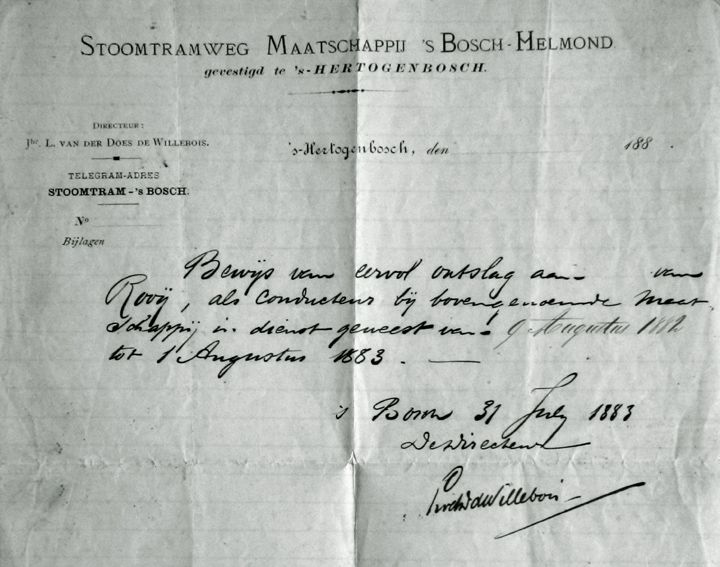 STOOMTRAMWEG MAATSCHAPPIJ 'S BOSCH-HELMOND
gevestigd te 's-HERTOGENBOSCH.
DIRECTEUR:
Jhr. L. VAN DER DOES DE WILLEBOIS.
TELEGRAM-ADRES
STOOMTRAM-'s BOSCH.
No
Bijlagen
's-Hertogenbosch, den 188 .
Bewijs van eervol ontslag aan van
Rooij, als conducteur bij bovengenoemde Maat
schappij in dienst geweest van 9 Augustus 1882
tot 1 Augustus 1883. —
's Bosch 31 July 1883
De Directeur